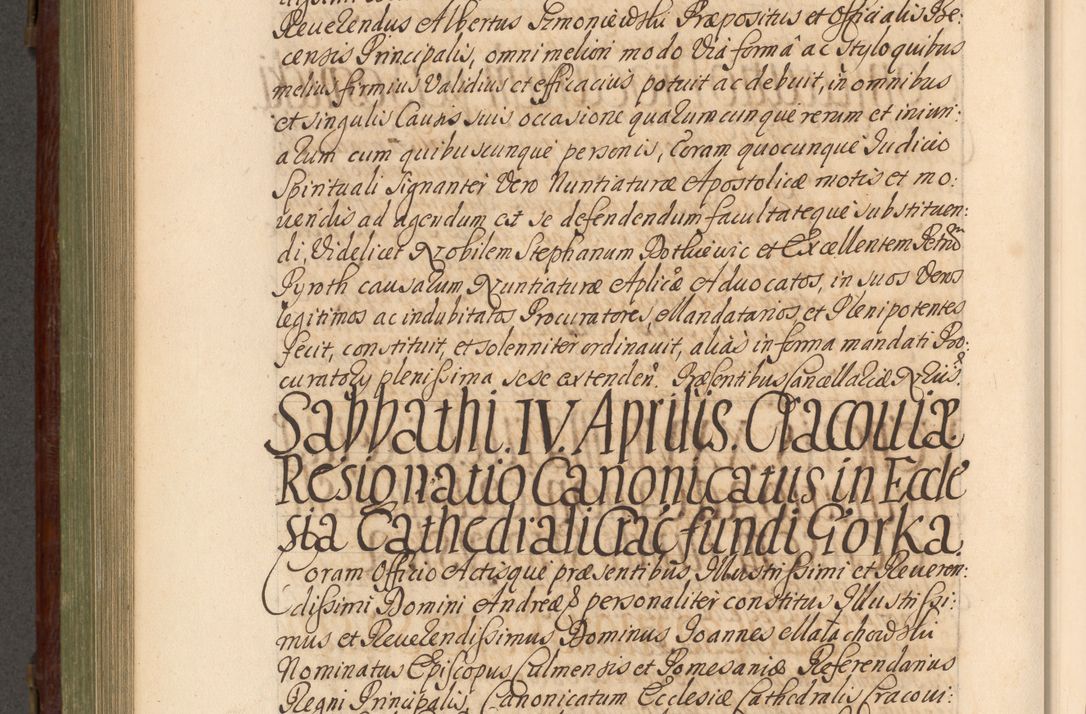 Reuerendus Albertus Simoniewski Præpositus et Officialis Be:
censis Principalis, omni meliori modo via forma ac stylo quibus
melius firmius validius et efficacius potuit ac debuit, in omnibus
et singulis Causis suis occasione quarumcunque rerum et iniuri:
arum cum quibuscunque personis, coram quocunque Iudicio
Spirituali signanter vero Nuntiaturæ Apostolicæ motis et mo:
uendis ad agendum et se defendendum facultateque substituen:
di, videlicet Nobilem Stephanum Bothuewic et Excellentem Petrum
Pyroth causarum Nuntiaturæ Aplicæ Aduocatos, in suos veros
legitimos ac indubitatos Procuratores, Mandatarios, et Plenipotentes
fecit, constituit, et solenniter ordinauit, alias in forma mandati Pro:
curatory plenissima sese extenden. Præsentibus Cancellariæ Nriis.
Sabbathi. IV. Aprilis. Cracouiæ
Resignatio Canonicatus in Eccle
sia Cathedrali Crac fundi Gorka.
Coram Officio Actisque præsentibus, Illustrissimi et Reueren:
dissimi Domini Andreæ personaliter constitus Illustrissi:
mus et Reuerendissimus Dominus Joannes Małachowski
Nominatus Episcopus Culmensis et Pomesaniæ Referendarius
Regni Principalis, Canonicatum Ecclesiæ Cathedralis Cracoui: